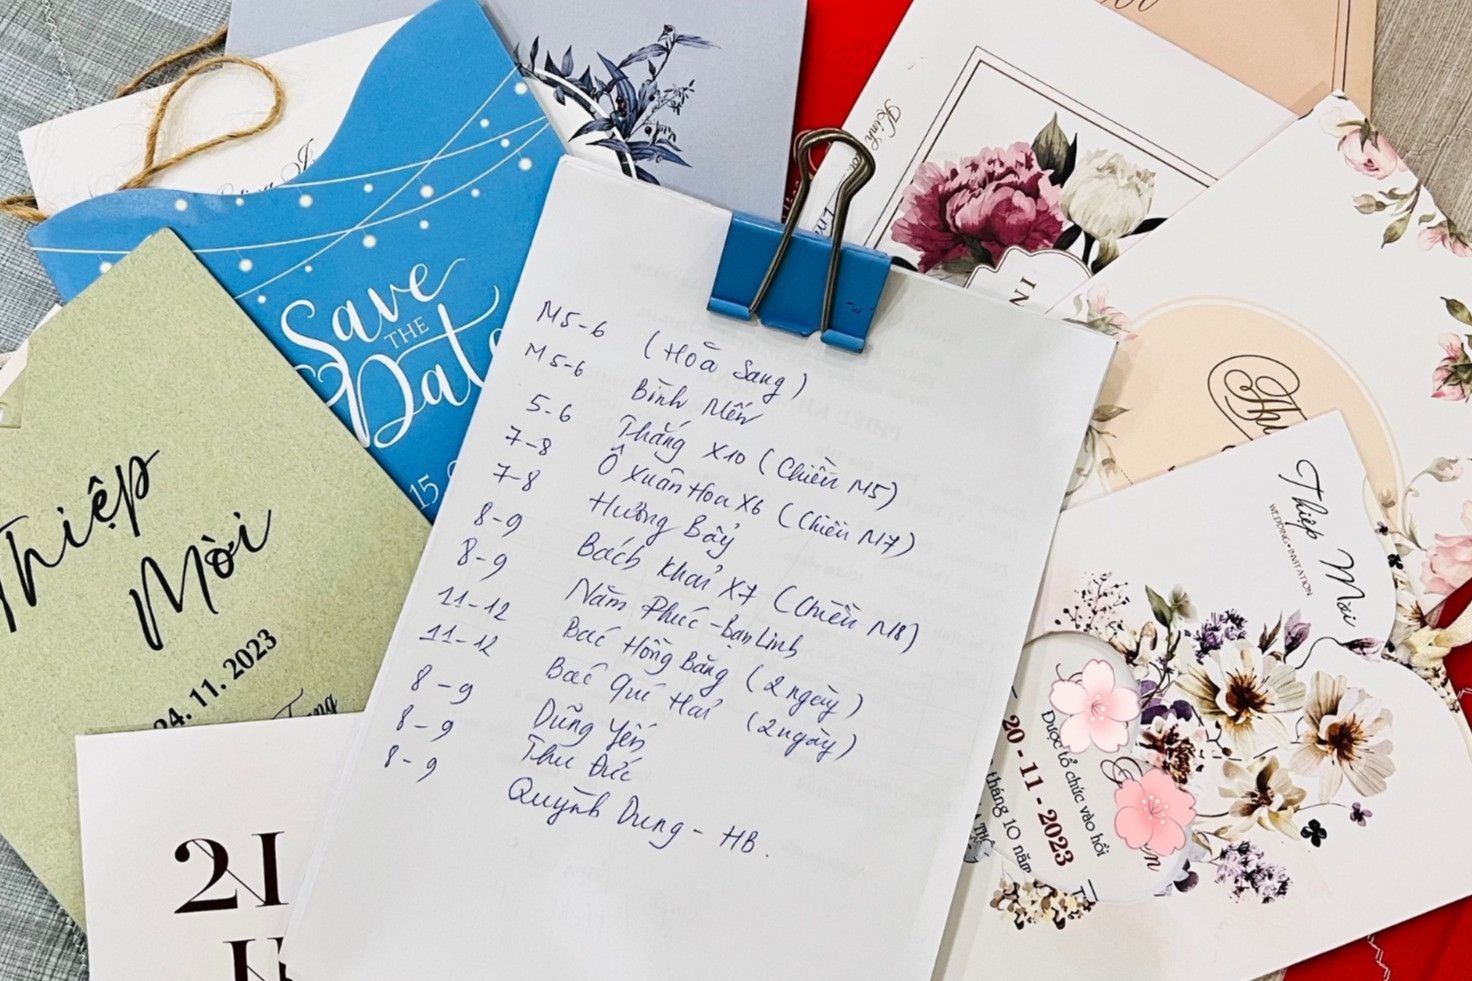 Save
THE
Date
15
Thiệp
Mời
24. 11. 2023
M5-6 (Hoà Sang)
M5-6 Bình Mến
5-6 Thắng X10 (Chiều M5)
7-8 Ô Xuân Hoa X6 (Chiều M7)
7-8 Hường Bẩy
8-9 Bách Khải X7 (Chiều M8)
8-9 Năm Phúc - Bạn Linh
11-12 Bác Hồng Bằng (2 ngày)
11-12 Bác Quí Hải (2 ngày)
8-9 Dũng Yến
8-9 Thu Đức
8-9 Quỳnh Dung - HB.
Kính
IN
Thiệp Mời
WEDDING INVITATION
Được tổ chức vào hồi
20 - 11 - 2023
tháng 10 năm